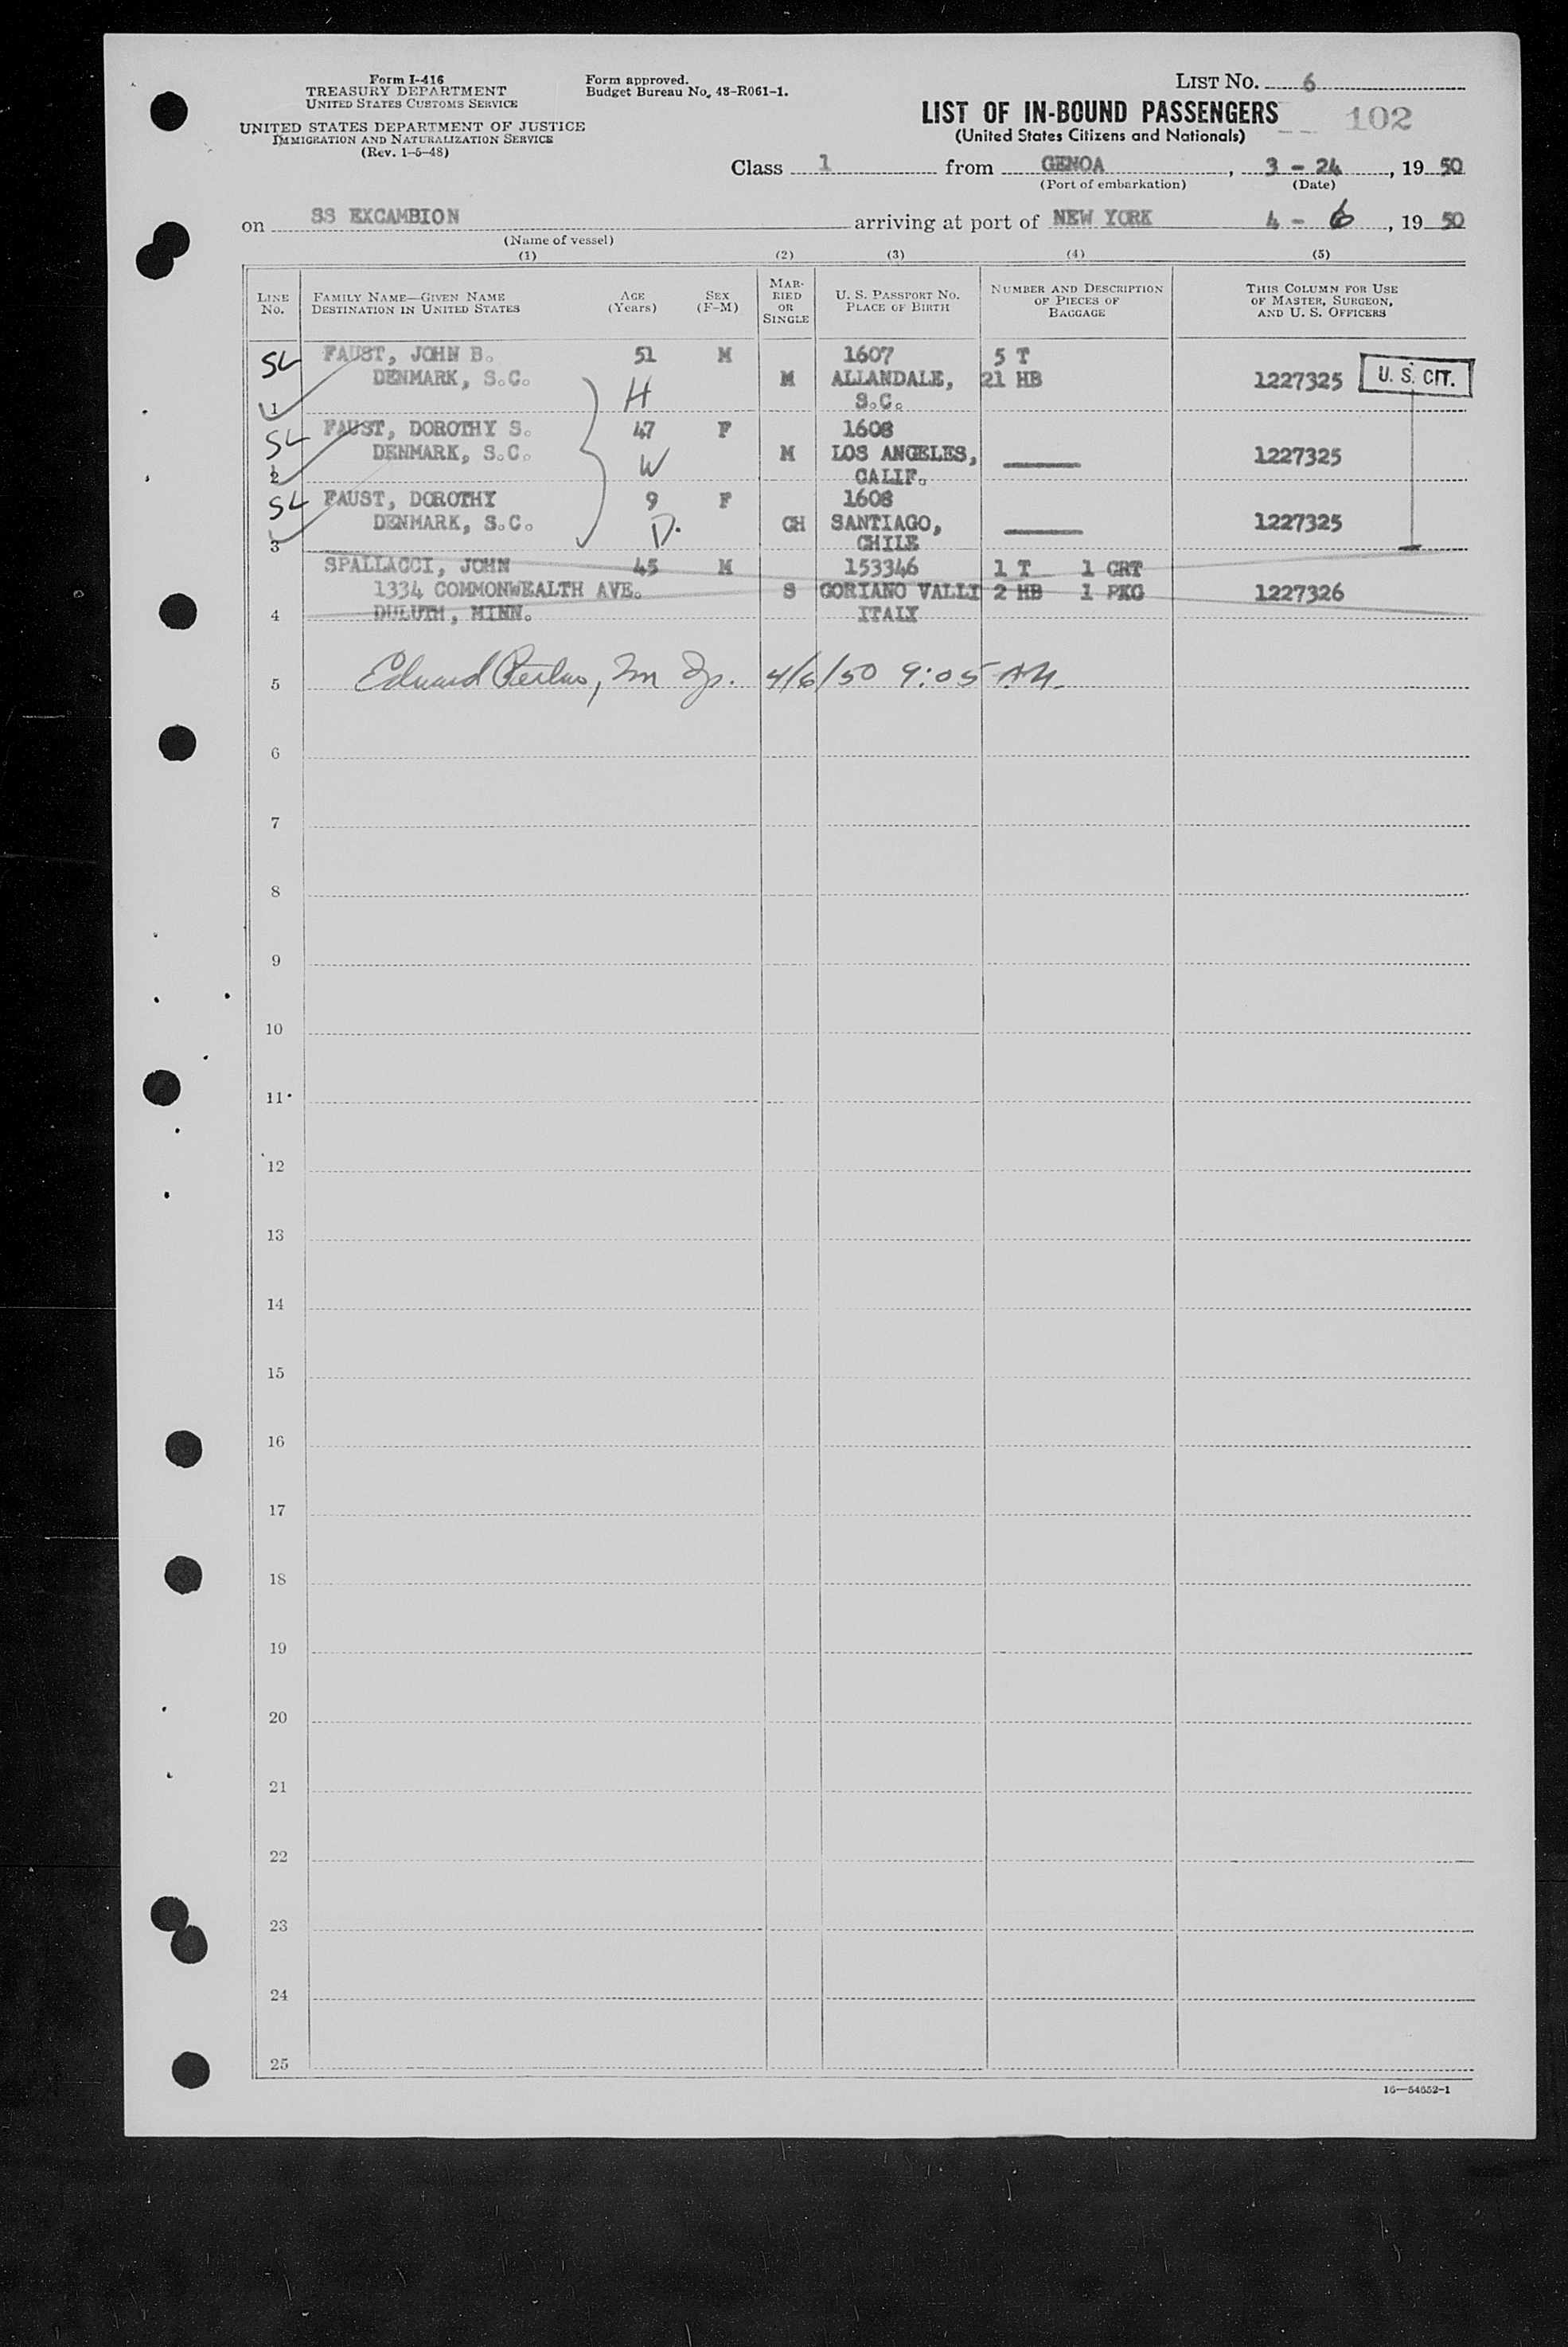 Form I-416
TREASURY DEPARTMENT
UNITED STATES CUSTOMS SERVICE
UNITED STATES DEPARTMENT OF JUSTICE
IMMIGRATION AND NATURALIZATION SERVICE
(Rev. 1-5-48)
Form approved.
Budget Bureau No. 48-R061-1.
LIST No. 6
LIST OF IN-BOUND PASSENGERS
102
(United States Citizens and Nationals)
Class 1 from GENOA, 3 - 24, 19 50
(Port of embarkation) (Date)
on SS EXCAMBION arriving at port of NEW YORK 4 - 6, 19 50
(Name of vessel)
(1) (2) (3) (4) (5)
LINE No. FAMILY NAME—GIVEN NAME DESTINATION IN UNITED STATES AGE (Years) SEX (F-M) MARRIED OR SINGLE U. S. PASSPORT NO. PLACE OF BIRTH NUMBER AND DESCRIPTION OF PIECES OF BAGGAGE THIS COLUMN FOR USE OF MASTER, SURGEON, AND U. S. OFFICERS
SL FAUST, JOHN B. 51 M 1607 5 T
DENMARK, S.C. H M ALLANDALE, 21 HB 1227325 U. S. CIT.
1 S.C.
SL FAUST, DOROTHY S. 47 F 1608
DENMARK, S.C. W M LOS ANGELES, 1227325
2 CALIF.
SL FAUST, DOROTHY 9 F 1608
DENMARK, S.C. D. CH SANTIAGO, 1227325
3 CHILE
SPALLACCI, JOHN 45 M 153346 1 T 1 CRT
1334 COMMONWEALTH AVE. S GORIANO VALLI 2 HB 1 PKG 1227326
4 DULUTH, MINN. ITALY
5 Edward 4/6/50 9:05 AM.
6
7
8
9
10
11
12
13
14
15
16
17
18
19
20
21
22
23
24
25
16—54652-1